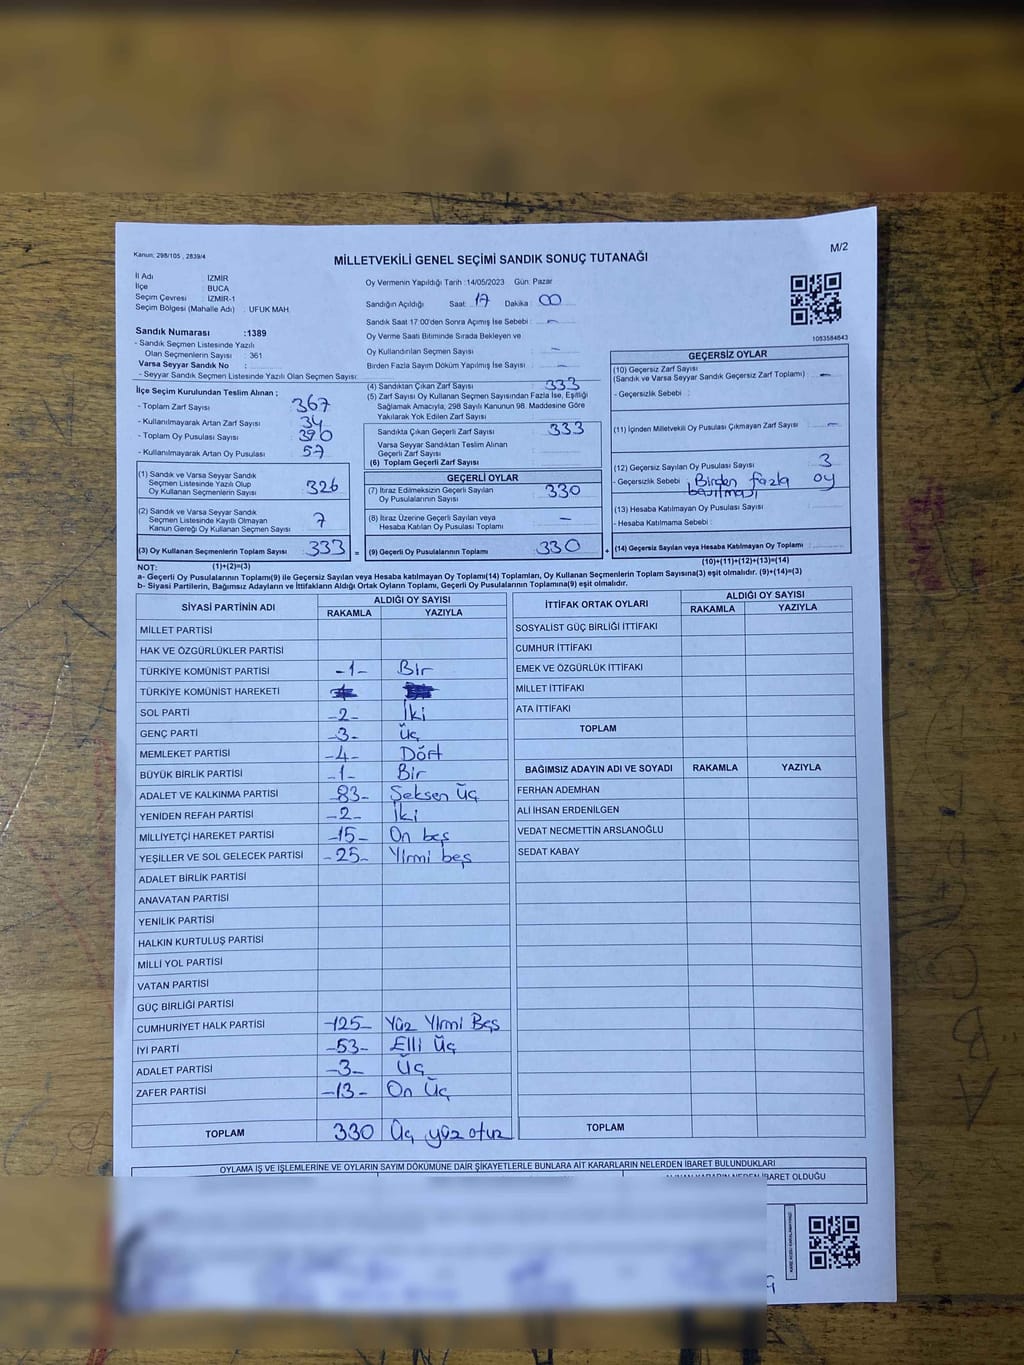 Kanun: 298/105 , 2839/4
MİLLETVEKİLİ GENEL SEÇİMİ SANDIK SONUÇ TUTANAĞI
M/2
İl Adı : İZMİR
İlçe : BUCA
Seçim Çevresi : İZMİR-1
Seçim Bölgesi (Mahalle Adı) : UFUK MAH.
Sandık Numarası :1389
- Sandık Seçmen Listesinde Yazılı
Olan Seçmenlerin Sayısı : 361
Varsa Seyyar Sandık No :
- Seyyar Sandık Seçmen Listesinde Yazılı Olan Seçmen Sayısı:
Oy Vermenin Yapıldığı Tarih :14/05/2023 Gün: Pazar
Sandığın Açıldığı Saat: 17 Dakika : 00
Sandık Saat 17:00'den Sonra Açılmış İse Sebebi : -
Oy Verme Saati Bitiminde Sırada Bekleyen ve
Oy Kullandırılan Seçmen Sayısı -
Birden Fazla Sayım Döküm Yapılmış İse Sayısı : -
1083584643
İlçe Seçim Kurulundan Teslim Alınan ;
- Toplam Zarf Sayısı 367
- Kullanılmayarak Artan Zarf Sayısı : 34
- Toplam Oy Pusulası Sayısı : 390
- Kullanılmayarak Artan Oy Pusulası : 57
(1) Sandık ve Varsa Seyyar Sandık
Seçmen Listesinde Yazılı Olup
Oy Kullanan Seçmenlerin Sayısı 326
(2) Sandık ve Varsa Seyyar Sandık
Seçmen Listesinde Kayıtlı Olmayan
Kanun Gereği Oy Kullanan Seçmen Sayısı 7
(3) Oy Kullanan Seçmenlerin Toplam Sayısı 333 =
(1)+(2)=(3)
(4) Sandıktan Çıkan Zarf Sayısı : 333
(5) Zarf Sayısı Oy Kullanan Seçmen Sayısından Fazla İse, Eşitliği
Sağlamak Amacıyla, 298 Sayılı Kanunun 98. Maddesine Göre
Yakılarak Yok Edilen Zarf Sayısı
Sandıkta Çıkan Geçerli Zarf Sayısı : 333
Varsa Seyyar Sandıktan Teslim Alınan
Geçerli Zarf Sayısı
(6) Toplam Geçerli Zarf Sayısı :
GEÇERLİ OYLAR
(7) İtiraz Edilmeksizin Geçerli Sayılan
Oy Pusulalarının Sayısı : 330
(8) İtiraz Üzerine Geçerli Sayılan veya
Hesaba Katılan Oy Pusulası Toplamı : -
(9) Geçerli Oy Pusulalarının Toplamı : 330 +
GEÇERSİZ OYLAR
(10) Geçersiz Zarf Sayısı
(Sandık ve Varsa Seyyar Sandık Geçersiz Zarf Toplamı) : -
- Geçersizlik Sebebi :
(11) İçinden Milletvekili Oy Pusulası Çıkmayan Zarf Sayısı : -
(12) Geçersiz Sayılan Oy Pusulası Sayısı : 3
- Geçersizlik Sebebi : Birden fazla oy
basılması
(13) Hesaba Katılmayan Oy Pusulası Sayısı :
- Hesaba Katılmama Sebebi :
(14) Geçersiz Sayılan veya Hesaba Katılmayan Oy Toplamı :
(10)+(11)+(12)+(13)=(14)
NOT:
a- Geçerli Oy Pusulalarının Toplamı(9) ile Geçersiz Sayılan veya Hesaba katılmayan Oy Toplamı(14) Toplamları, Oy Kullanan Seçmenlerin Toplam Sayısına(3) eşit olmalıdır. (9)+(14)=(3)
b- Siyasi Partilerin, Bağımsız Adayların ve İttifakların Aldığı Ortak Oyların Toplamı, Geçerli Oy Pusulalarının Toplamına(9) eşit olmalıdır.
SİYASİ PARTİNİN ADI ALDIĞI OY SAYISI
RAKAMLA YAZIYLA
MİLLET PARTİSİ
HAK VE ÖZGÜRLÜKLER PARTİSİ
TÜRKİYE KOMÜNİST PARTİSİ -1- Bir
TÜRKİYE KOMÜNİST HAREKETİ
SOL PARTİ -2- İki
GENÇ PARTİ -3- Üç
MEMLEKET PARTİSİ -4- Dört
BÜYÜK BİRLİK PARTİSİ -1- Bir
ADALET VE KALKINMA PARTİSİ -83- Seksen Üç
YENİDEN REFAH PARTİSİ -2- İki
MİLLİYETÇİ HAREKET PARTİSİ -15- On beş
YEŞİLLER VE SOL GELECEK PARTİSİ -25- Yirmi beş
ADALET BİRLİK PARTİSİ
ANAVATAN PARTİSİ
YENİLİK PARTİSİ
HALKIN KURTULUŞ PARTİSİ
MİLLİ YOL PARTİSİ
VATAN PARTİSİ
GÜÇ BİRLİĞİ PARTİSİ
CUMHURİYET HALK PARTİSİ -125- Yüz Yirmi Beş
İYİ PARTİ -53- Elli Üç
ADALET PARTİSİ -3- Üç
ZAFER PARTİSİ -13- On Üç
TOPLAM 330 Üç yüz otuz
İTTİFAK ORTAK OYLARI ALDIĞI OY SAYISI
RAKAMLA YAZIYLA
SOSYALİST GÜÇ BİRLİĞİ İTTİFAKI
CUMHUR İTTİFAKI
EMEK VE ÖZGÜRLÜK İTTİFAKI
MİLLET İTTİFAKI
ATA İTTİFAKI
TOPLAM
BAĞIMSIZ ADAYIN ADI VE SOYADI RAKAMLA YAZIYLA
FERHAN ADEMHAN
ALİ İHSAN ERDENİLGEN
VEDAT NECMETTİN ARSLANOĞLU
SEDAT KABAY
TOPLAM
OYLAMA İŞ VE İŞLEMLERİNE VE OYLARIN SAYIM DÖKÜMÜNE DAİR ŞİKAYETLERLE BUNLARA AİT KARARLARIN NELERDEN İBARET BULUNDUKLARI
ALINAN KARARIN NEDEN İBARET OLDUĞU